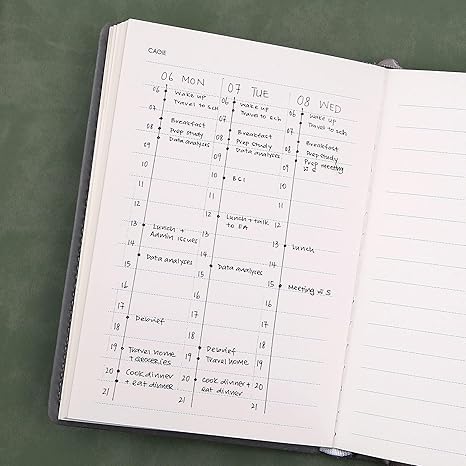 CAGIE
06 MON
06 Wake up
Travel to sch
07 Breakfast
08 Prep study
Data analyses
09
10
11
12
13 Lunch +
Admin issues
14
15 Data analyses
16
17
18 Debrief
19 Travel home
+ groceries
20 Cook dinner
+ eat dinner
21
07 TUE
06 Wake up
Travel to sch
07 Breakfast
08 Prep study
Data analyses
09
10 BCI
11
12 Lunch + talk
to EA
13
14
15 Data analyses
16
17
18
Debrief
19 Travel home
20 Cook dinner
+ eat dinner
21
08 WED
06 Wake up
Travel to sch
07 Breakfast
08 Prep study
09 Prep meeting
S
10
11
12
13 Lunch
14
15 Meeting S
16
17
18
19
20
21